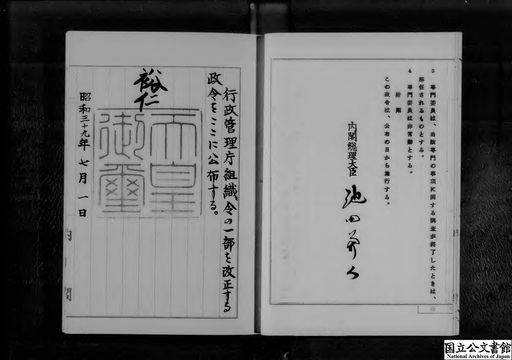 3 専門委員は、当該専門の事項に関する調査が終了したときは、
解任されるものとする。
4 専門委員は非常勤とする。
附則
この政令は、公布の日から施行する。
内閣総理大臣
池田勇人
行政管理庁組織令の一部を改正する
政令をここに公布する。
裕仁
天皇
御璽
昭和三十九年七月一日
内閣
国立公文書館
National Archives of Japan